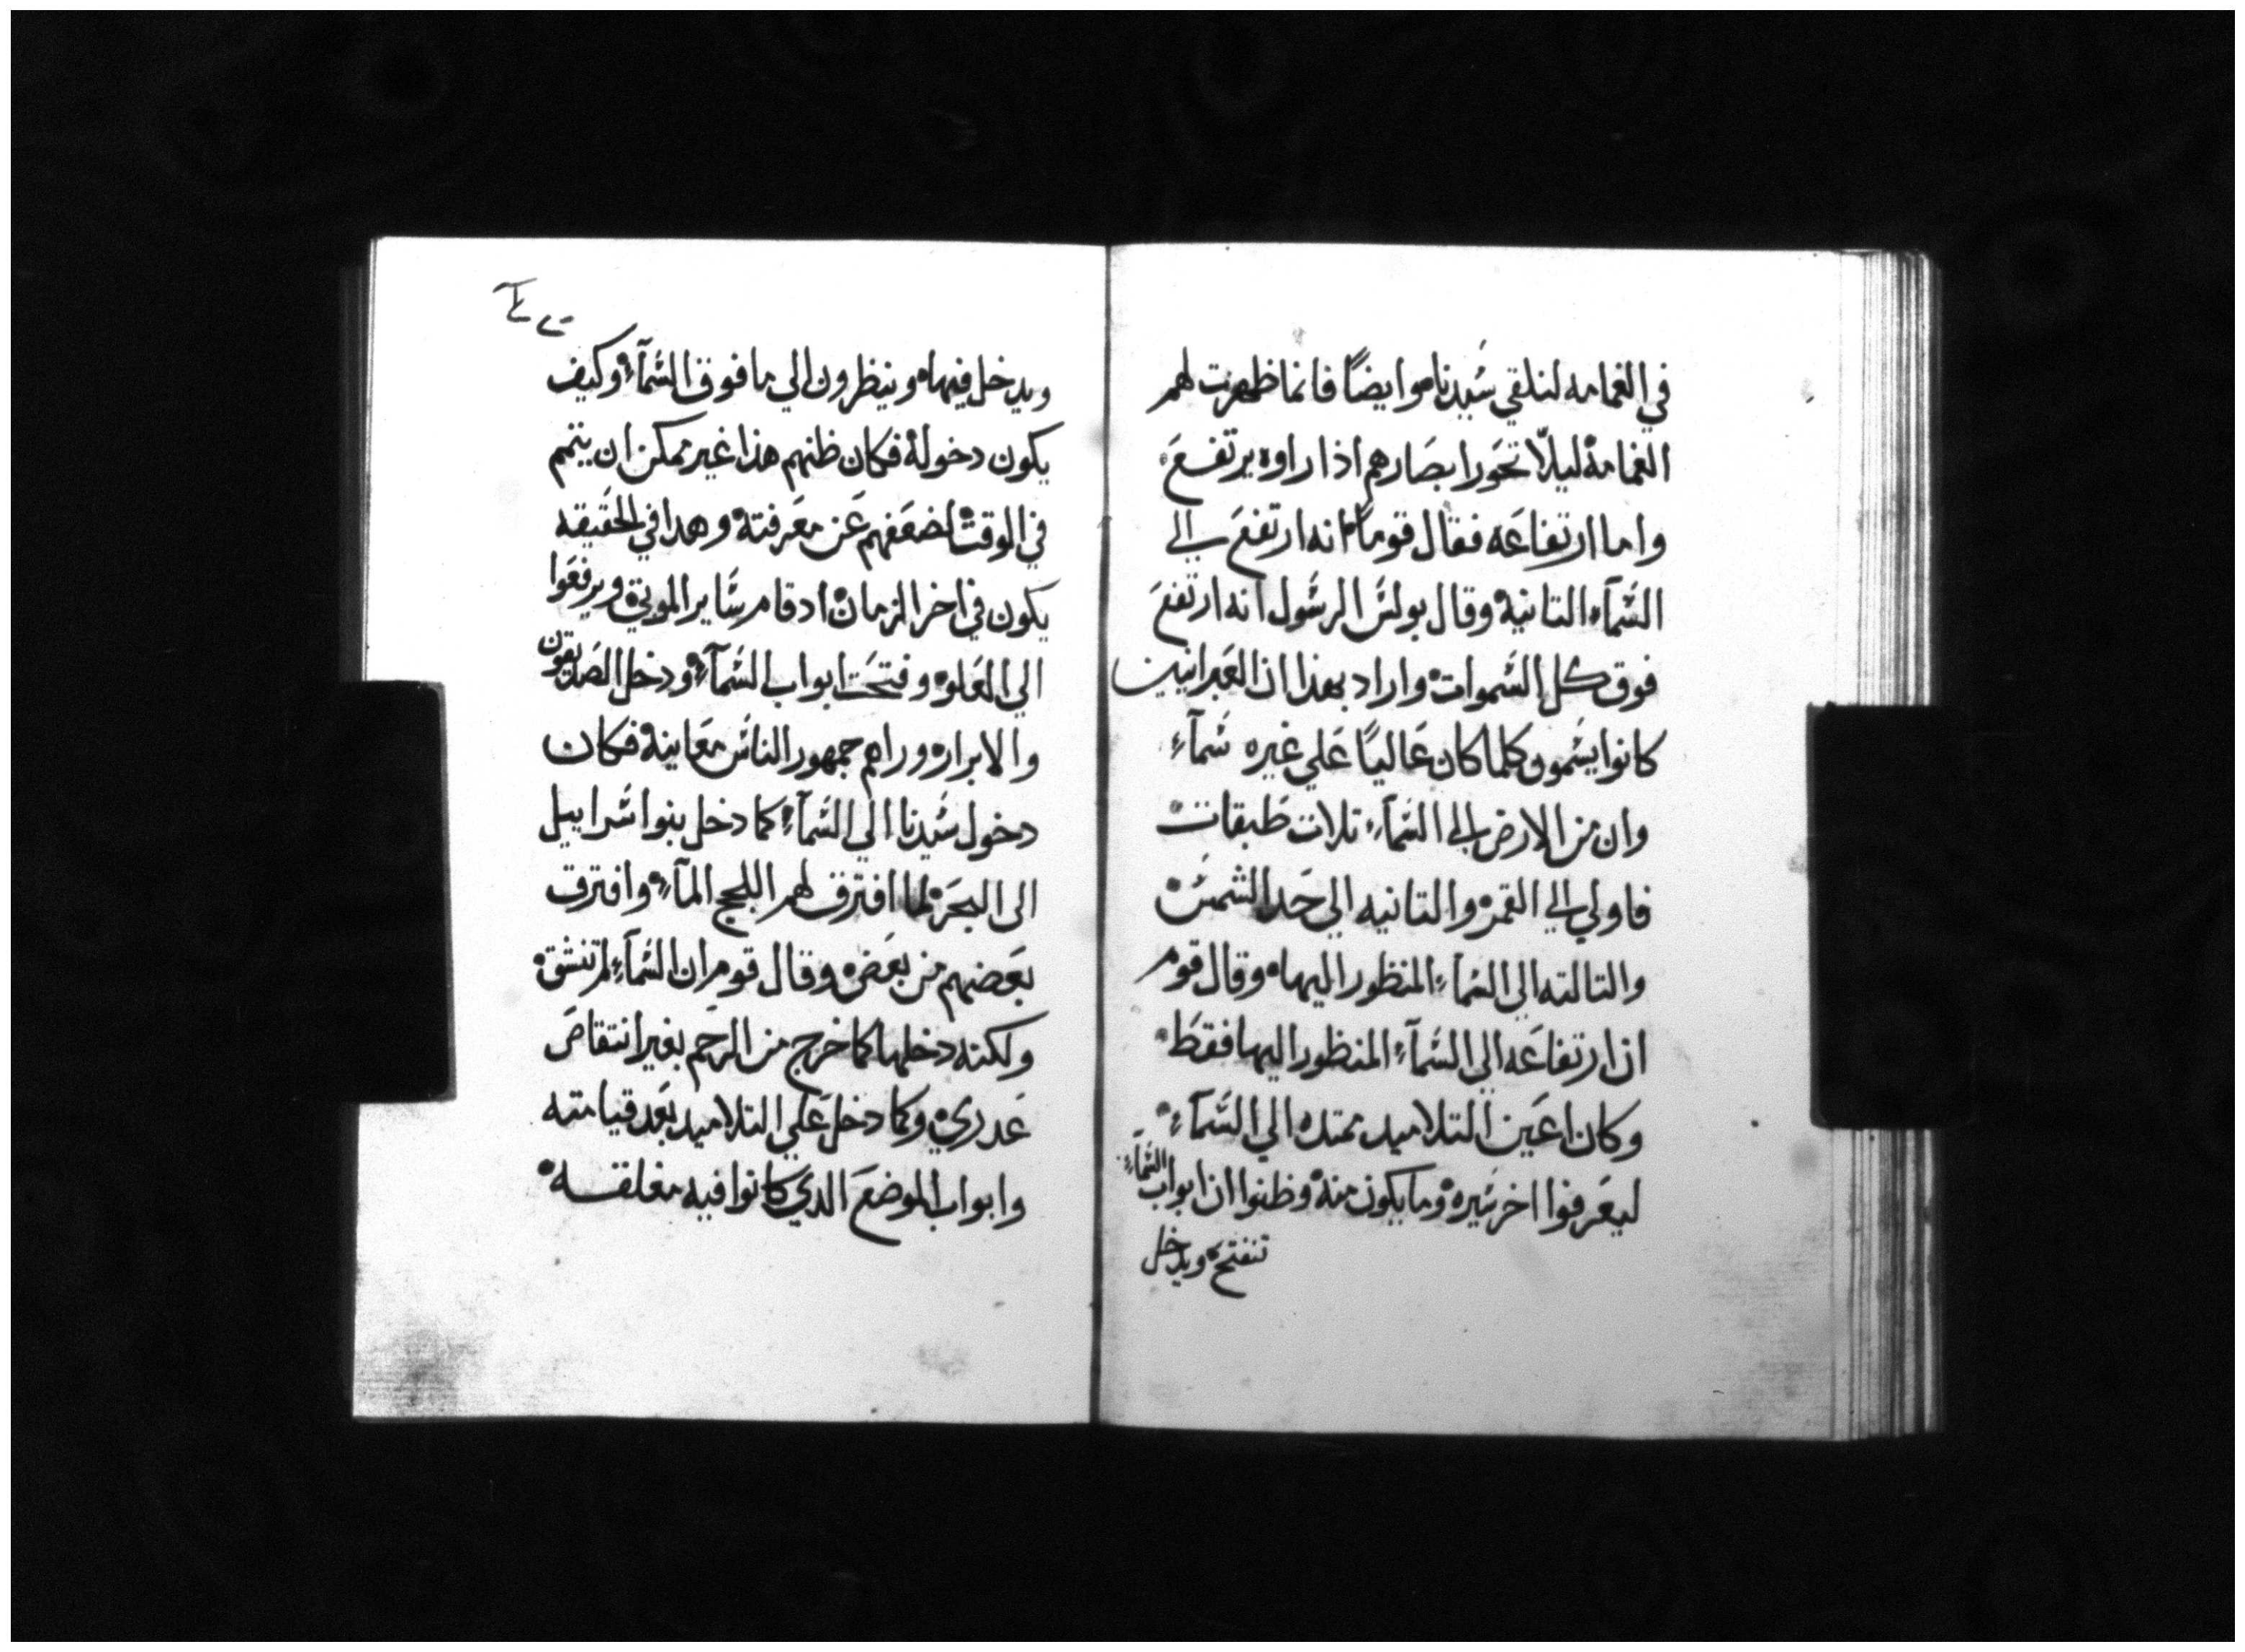 في الغمامه لنلقي سيدنا موايضًا فانما ظهرت لهم
الغمامه ليلّا تخور ابصارهم اذا راوه يرتفع
واما ارتفاعه فقال قومًا انه ارتفع الي
السمآء التانيه وقال بولس الرسول انه ارتفع
فوق كل السموات واراد بهذا ان العبرانيين
كانوا يسمون كلما كان عاليًا علي غيره سمآء
وان من الارض الي السمآء تلات طبقات
فاولي الي القمر والتانيه الي حد الشمس
والتالته الي السمآء المنظور اليها وقال قوم
ان ارتفاعه الي السمآء المنظور اليها فقط
وكان اعين التلاميد ممتده الي السمآء
ليعرفوا اخر سيره وما يكون منه وظنوا ان ابواب السمآء
تنفتح ويدخل
ويدخل فيها وينظرون الي ما فوق السمآء وكيف
يكون دخوله فكان ظنهم هذا غير ممكن ان يتمم
في الوقت لضعفهم عن معرفته وهدا في الحقيقه
يكون في اخر الزمان ادقام ساير الموتي ويرفعوا
الي العلو وفتحت ابواب السمآء ودخل الصديقون
والابرار وراهم جمهور الناس معاينه فكان
دخول سيدنا الي السمآء كما دخل بنوا سراييل
الى البحر لما افترق لهم اللجج المآء وافترق
بعضهم من بعض وقال قوم ان السمآء لم تنشق
ولكنه دخلها كما خرج من الرحم بغير انتقاص
عدري وكما دخل علي التلاميد بعد قيامته
وابواب الموضع الدي كانوا فيه مغلقه